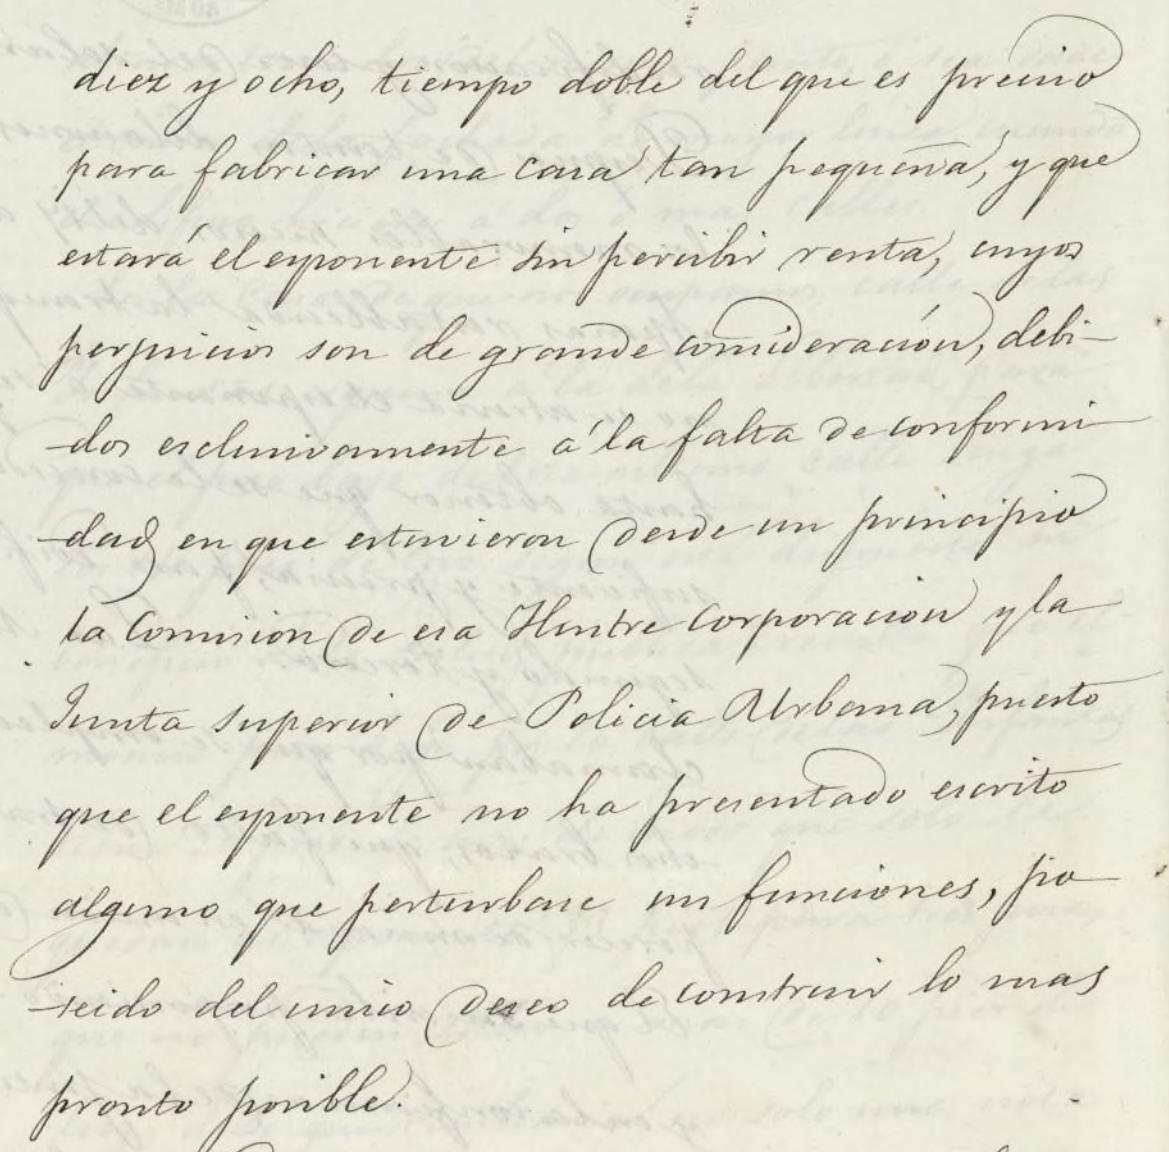 diez y ocho, tiempo doble del que es preciso
para fabricar una casa tan pequeña, y que
estará el esponente sin percibir renta, cuyos
perjuicios son de grande consideración, debi-
-dos esclusivamente á la falta de conformi-
-dad en que estuvieron desde un principio
la Comision de esa Ilustre Corporacion y la
Junta superior de Policia Urbana, puesto
que el esponente no ha presentado escrito
alguno que perturbase sus funciones, po-
-seido del unico deseo de construir lo mas
pronto posible.